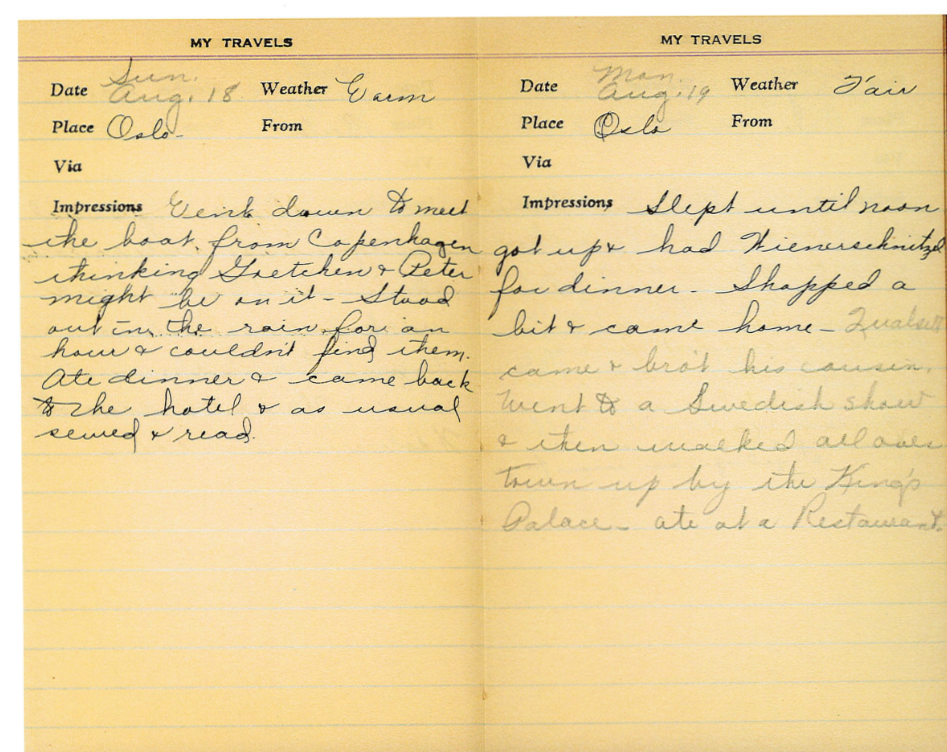 MY TRAVELS
Sun.
Date Aug. 18 Weather Warm
Place Oslo- From
Via
Impressions Went down to meet
the boat from Copenhagen
thinking Gretchen & Peter
might be on it - Stood
out in the rain for an
hour & couldn't find them.
Ate dinner & came back
to the hotel & as usual
sewed & read.
MY TRAVELS
Mon.
Date Aug. 19 Weather Fair
Place Oslo From
Via
Impressions Slept until noon
got up & had Wienerschnitzel
for dinner - Shopped a
bit & came home -
came & bro't his cousin.
Went to a Swedish show
& then walked all over
town up by the King's
Palace - ate at a Restaurant